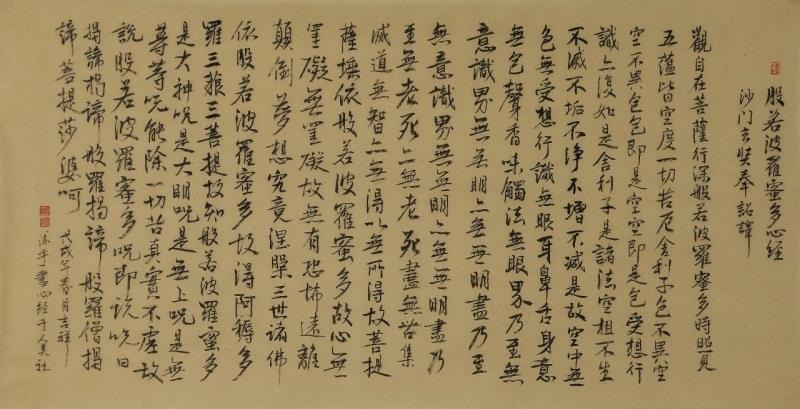 般若波羅蜜多心經
沙门玄奘奉詔譯
觀自在菩薩行深般若波羅蜜多時照見
五蘊皆空度一切苦厄舍利子色不異空
空不異色色即是空空即是色受想行
識亦復如是舍利子是諸法空相不生
不滅不垢不淨不增不減是故空中無
色無受想行識無眼耳鼻舌身意
無色聲香味觸法無眼界乃至無
意識界無無明亦無無明盡乃至
無意識界無無明亦無無明盡乃
至無老死亦無老死盡無苦集
滅道無智亦無得以無所得故菩提
薩埵依般若波羅蜜多故心無
罣礙無罣礙故無有恐怖遠離
顛倒夢想究竟涅槃三世諸佛
依般若波羅蜜多故得阿耨多
羅三藐三菩提故知般若波羅蜜多
是大神咒是大明咒是無上咒是無
等等咒能除一切苦真實不虛故
說般若波羅蜜多咒即說咒曰
揭諦揭諦般羅揭諦般羅僧揭
諦菩提莎婆呵
戊戌年春月吉祥
書心經于人美社